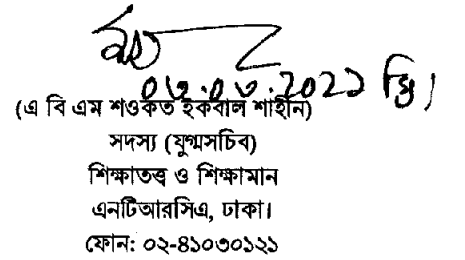 ০৬.০৬.2০2১ খ্রি।
(এ বি এম শওকত ইকবাল শাহীন)
সদস্য (যুগ্মসচিব)
শিক্ষাতত্ত্ব ও শিক্ষামান
এনটিআরসিএ, ঢাকা।
ফোন: ০২-৪১০৩০১২১